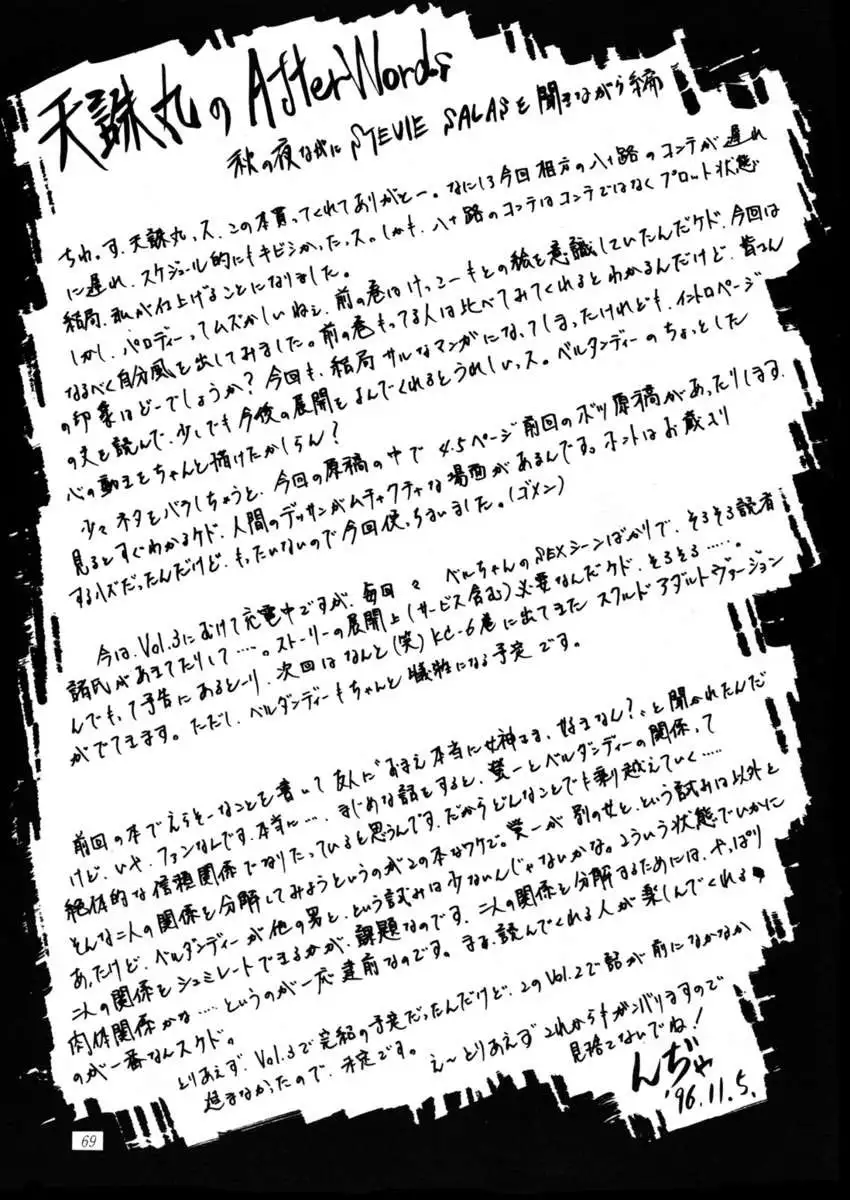 天誅丸の AfterWords
秋の夜ながに STEVIE SALASを聞きながら締
ちわーす、天誅丸っス、この本買ってくれてありがとー。なにしろ今回相方の八十路のコンテが遅れ
に遅れ、スケジュール的にもキビシかったっス。しかも、八十路のコンテはコンテではなくプロット状態
結局、私が仕上げることになりました。
しかし、パロディーってムズかしいねぇ、前の巻はけっこーもとの絵を意識していたんだケド、今回は
なるべく自分風を出してみました。前の巻もってる人は比べてみてくれるとわかるんだけど、皆さん
の印象はどーでしょうか？今回も、結局サルなマンガになってしまったけれども、イントロページ
の文を読んで、少しでも今後の展開をよんでくれるとうれしいっス。ベルダンディーのちょっとした
心の動きをちゃんと描けたかしらん？
少々ネタをバラしちゃうと、今回の原稿の中で4.5ページ前回のボツ原稿があったりします。
見るとすぐわかるケド、人間のデッサンがムチャクチャな場面があるんです。ホントはお蔵入り
するハズだったんだけど、もったいないので今回使っちまいました。(ゴメン)
今は、Vol.3にむけて充電中ですが、毎回々ベルちゃんのSEXシーンばかりで、そろそろ読者
諸氏があきてたりして‥‥。ストーリーの展開上(サービス含む)必要なんだケド、そろそろ‥‥。
んでもって予告にあるとーり、次回はなんと(笑)KC-6巻に出てきたスクルドアダルトヴァージョン
がでてきます。ただし、ベルダンディーもちゃんと犠牲になる予定です。
前回の本でえらそーなことを書いて友人に"おまえ本当に女神さま、好きなん？"と聞かれたんだ
けど、いや、ファンなんです、本当に‥‥、まじめな話をすると、螢一とベルダンディーの関係って
絶体的な信頼関係でなりたっていると思うんです、だからどんなことでも乗り越えていく‥‥‥
そんな二人の関係を分解してみようというのがこの本なワケで。螢一が別の女と、という試みは以外と
あったけど、ベルダンディーが他の男と、という試みは少ないんじゃないかな。こういう状態でいかに
二人の関係をシュミレートできるかが、課題なのです、二人の関係を分解するためには、やっぱり
肉体関係かな‥‥‥というのが一応建前なのです。まぁ、読んでくれる人が楽しんでくれる
のが一番なんスケド。
とりあえず、Vol.3で完結の予定だったんだけど、このVol.2で話が前になかなか
進まなかったので、未定です。
え〜とりあえずこれからもガンバリますので
見捨てないでね！
んぢゃ
'96.11.5.
69